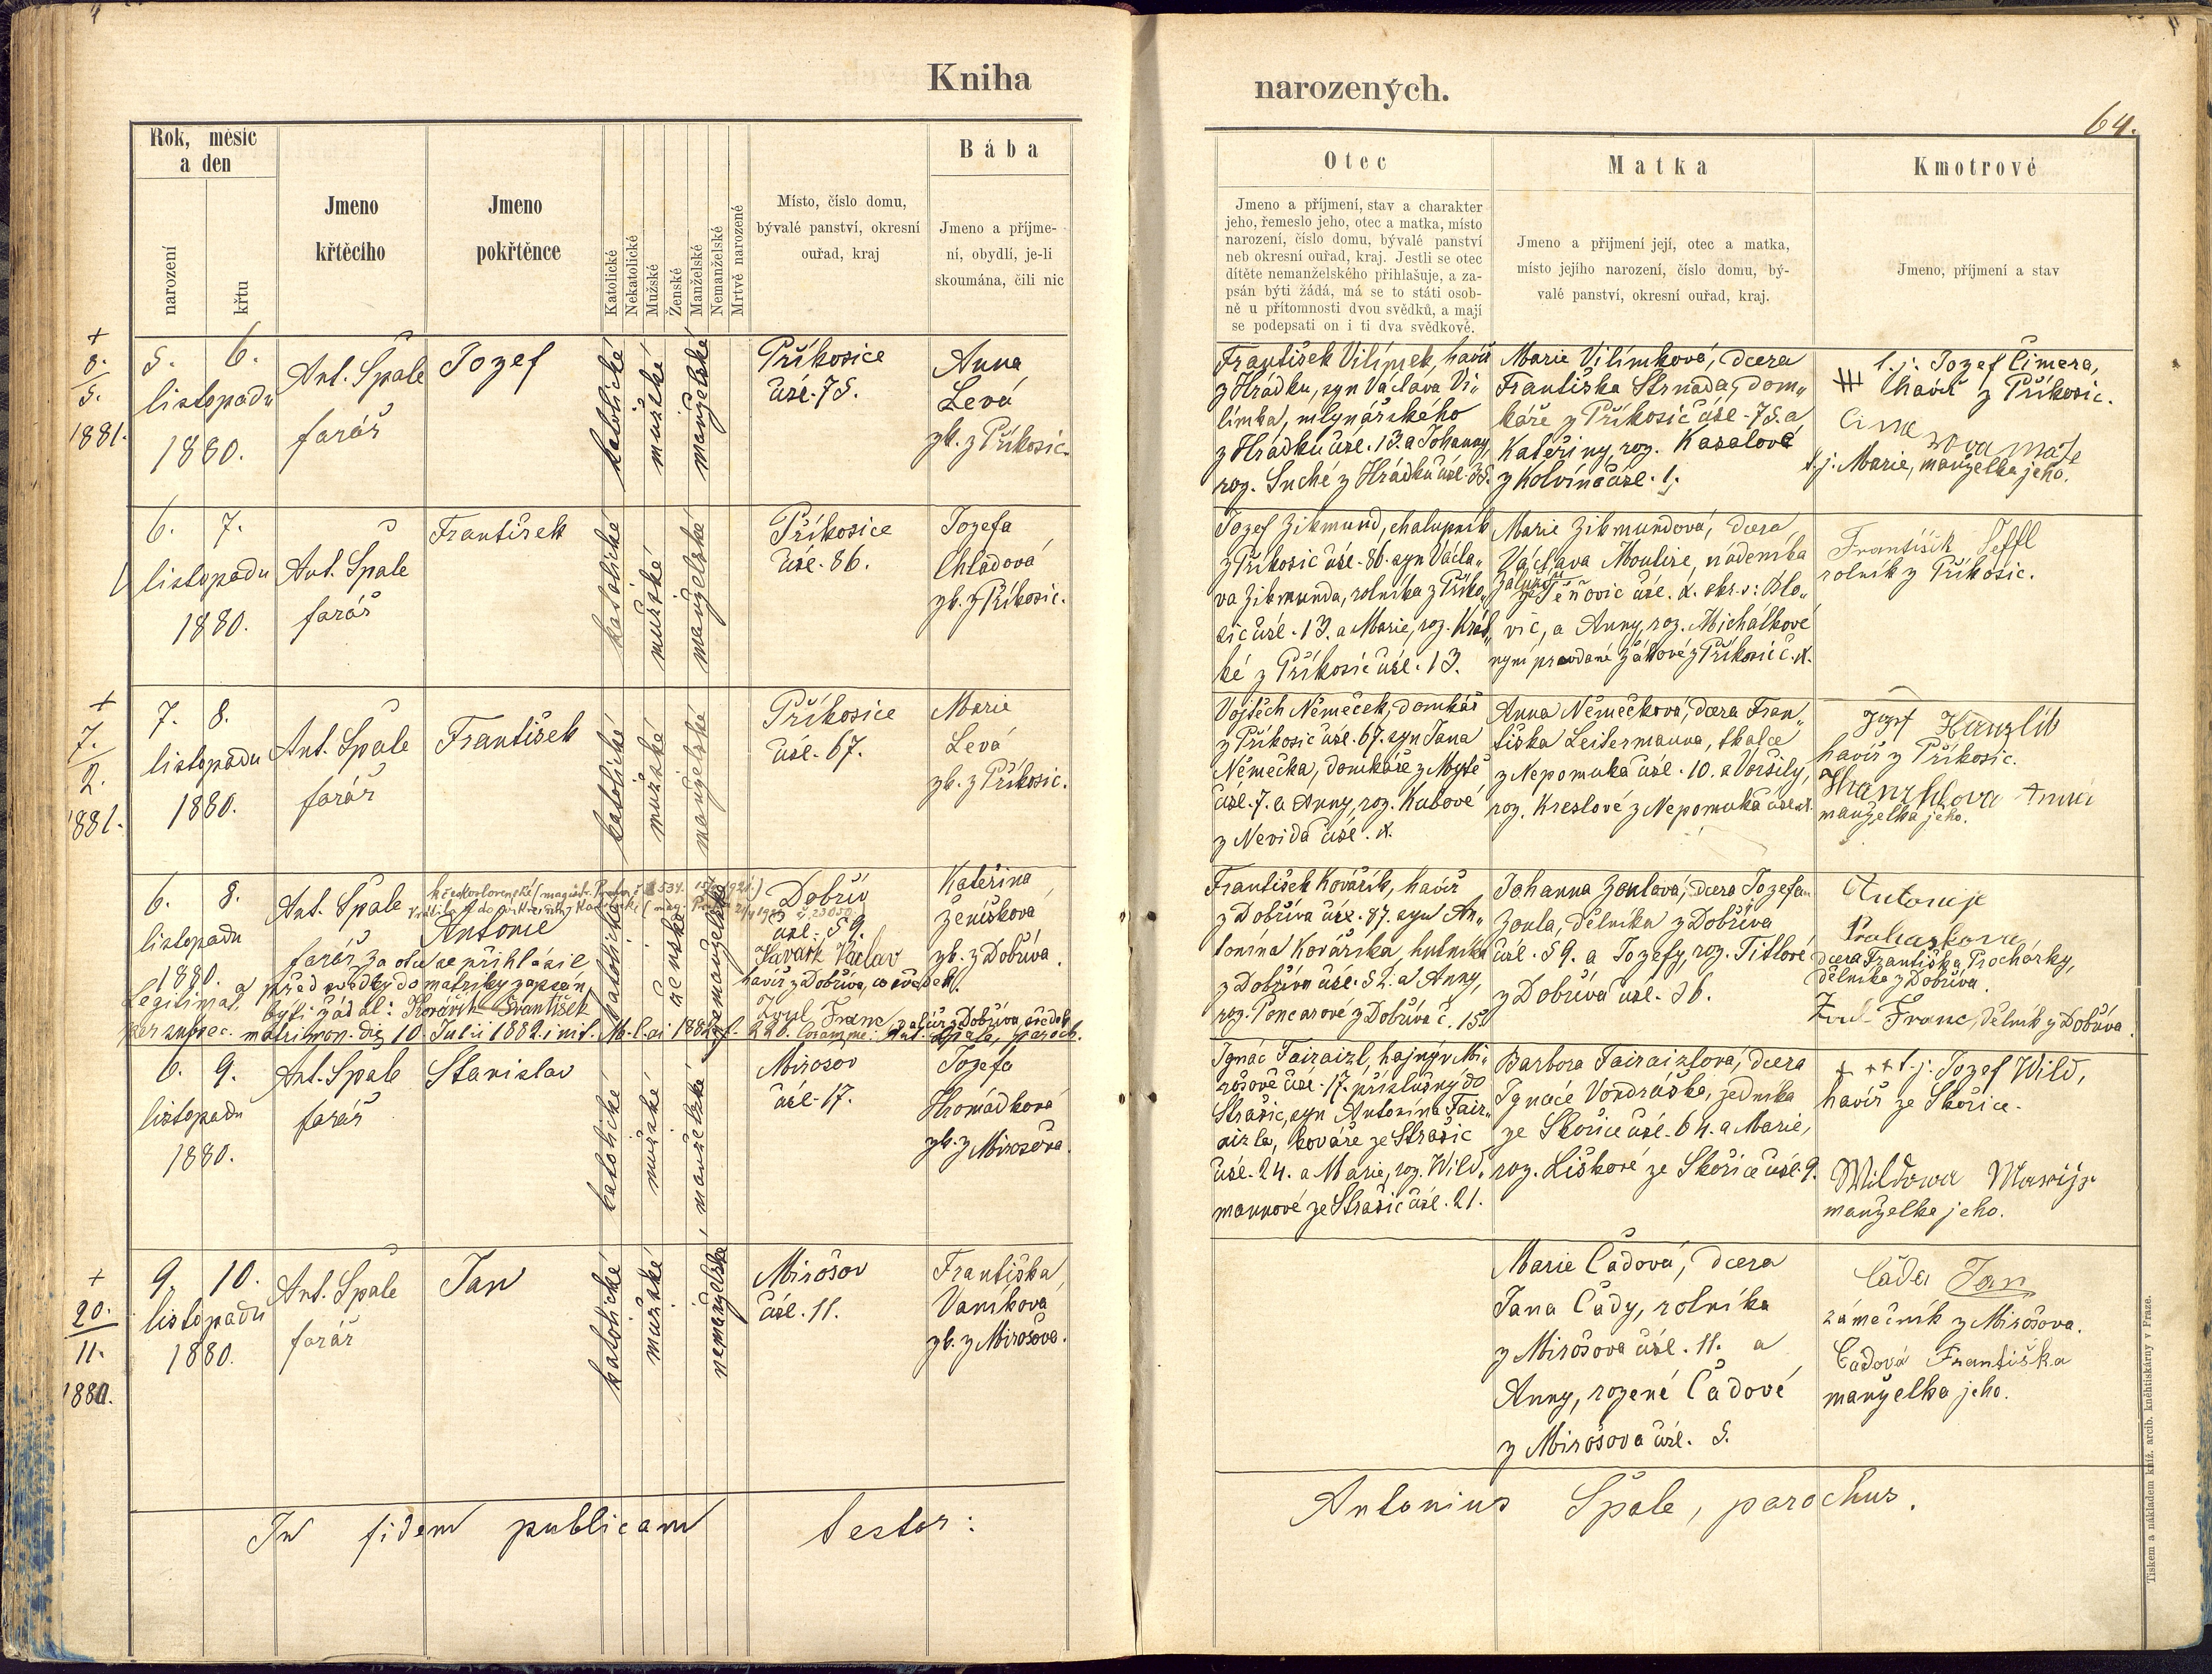 Kniha
narozených.
64.
Rok, měsíc
a den
narození
křtu
Jmeno
křtěcího
Jmeno
pokřtěnce
Katolické
Nekatolické
Mužské
Ženské
Manželské
Nemanželské
Mrtvě narozené
Místo, číslo domu,
bývalé panství, okresní
ouřad, kraj
Bába
Jmeno a příjme-
ní, obydlí, je-li
skoumána, čili nic
Otec
Jmeno a příjmení, stav a charakter
jeho, řemeslo jeho, otec a matka, místo
narození, číslo domu, bývalé panství
neb okresní ouřad, kraj. Jestli se otec
dítěte nemanželského přihlašuje, a za-
psán býti žádá, má se to státi osob-
ně u přítomnosti dvou svědků, a mají
se podepsati on i ti dva svědkové.
Matka
Jmeno a přijmení její, otec a matka,
místo jejího narození, číslo domu, bý-
valé panství, okresní ouřad, kraj.
Kmotrové
Jmeno, příjmení a stav
+
8.
5.
1881.
5. 6.
listopadu
1880.
Ant. Špale
farář
Jozef
katolické
mužské
manželské
Příkosice
čísl. 75.
Anna
Levá
zk. z Příkosic.
František Vilímek, havíř
z Hrádku, syn Václava Vi„
límka, mlynářského
z Hrádku čísl. 13. a Johanny,
roz. Suché z Hrádku čísl. 35.
Marie Vilímková, dcera
Františka Strnada, dom„
káře z Příkosic čísl. 75. a
Kateřiny, roz. Kasalové
z Kolvína čísl. 1.
t. j. Jozef Čimera,
havíř z Příkosic.
t. j. Marie, manželka jeho.
6. 7.
listopadu
1880.
Ant. Špale
farář
František
katolické
mužské
manželské
Příkosice
čísl. 86.
Jozefa
Chladová
zk. z Příkosic.
Jozef Zikmund, chalupník
z Příkosic čísl. 86. syn Václa„
va Zikmunda, rolníka z Příko„
sic čísl. 13. a Marie, roz. Král„
ké z Příkosic čísl. 13.
Marie Zikmundová, dcera
Václava Moulise, nádeníka
ze Těňovic čísl. X. okr. s: Blo„
vic, a Anny, roz. Michálkové
nyní provdané Žákové z Příkosic č. X.
František Jeffl
rolník z Příkosic.
+
7.
2.
1881.
7. 8.
listopadu
1880.
Ant. Špale
farář
František
katolické
mužské
manželské
Příkosice
čísl. 67.
Marie
Levá
zk. z Příkosic.
Vojtěch Němeček, domkář
z Příkosic čísl. 67. syn Jana
Němečka, domkáře z Mýtě
čísl. 7. a Anny, roz. Kubové
z Nevida čísl. X.
Anna Němečková, dcera Fran„
tiška Leitermanna, tkalce
z Nepomuka čísl. 10. a Voršily,
roz. Kreslové z Nepomuka čísl. X.
Jozef Hanzlík
havíř z Příkosic.
Hanzlíkova Anna
manželka jeho.
6. 8.
listopadu
1880.
Ant. Špale
farář
Antonie
katolické
ženské
nemanželské
Dobřív
čísl. 59.
Kateřina
Ženíšková
zk. z Dobříva.
za otce se přihlásil
a před svědky do matriky zapsán
býti žádal: Kovářík František
Kovářík Václav
havíř z Dobříva, co svědek.
Zoul Franc
Legitimat.
per subsec. matrimon. die 10 Julii 1882.
František Kovářík, havíř
z Dobříva čísl. 87. syn An„
tonína Kováříka, hutníka
z Dobříva čísl. 52. a Anny,
roz. Poncarové z Dobříva č. 15.
Johanna Zoulová, dcera Jozefa
Zoula, dělníka z Dobříva
čísl. 59. a Jozefy, roz. Titlové
z Dobříva čísl. 36.
Antonije
Prohaskova
dcera Františka Procházky,
dělníka z Dobříva.
Zoul Franc, dělník z Dobříva.
6. 9.
listopadu
1880.
Ant. Špale
farář
Stanislav
katolické
mužské
manželské
Mirošov
čísl. 17.
Jozefa
Hromádková
zk. z Mirošova.
Ignác Fairaizl, hajný v Mi„
rošově čísl. 17. příslušný do
Strašic, syn Antonína Fair„
aizla, kováře ze Strašic
čísl. 24. a Marie, roz. Wild„
mannové ze Strašic čísl. 21.
Barbora Fairaizlová, dcera
Ignáce Vondráška, sedníka
ze Skořice čísl. 64. a Marie,
roz. Liškové ze Skořice čísl. 9.
+++ t. j. Jozef Wild,
havíř ze Skořice.
Wildowa Marije
manželka jeho.
+
20.
11.
1880.
9. 10.
listopadu
1880.
Ant. Špale
farář
Jan
katolické
mužské
nemanželské
Mirošov
čísl. 11.
Františka
Vaníková
zk. z Mirošova.
Marie Čadová, dcera
Jana Čady, rolníka
z Mirošova čísl. 11. a
Anny, rozené Čadové
z Mirošova čísl. 5.
Čada Jan
zámečník z Mirošova.
Čadová Františka
manželka jeho.
In fidem publicam testor:
Antonius Špale, parochus.
Tiskem a nákladem kníž. arcib. kněhtiskárny v Praze.